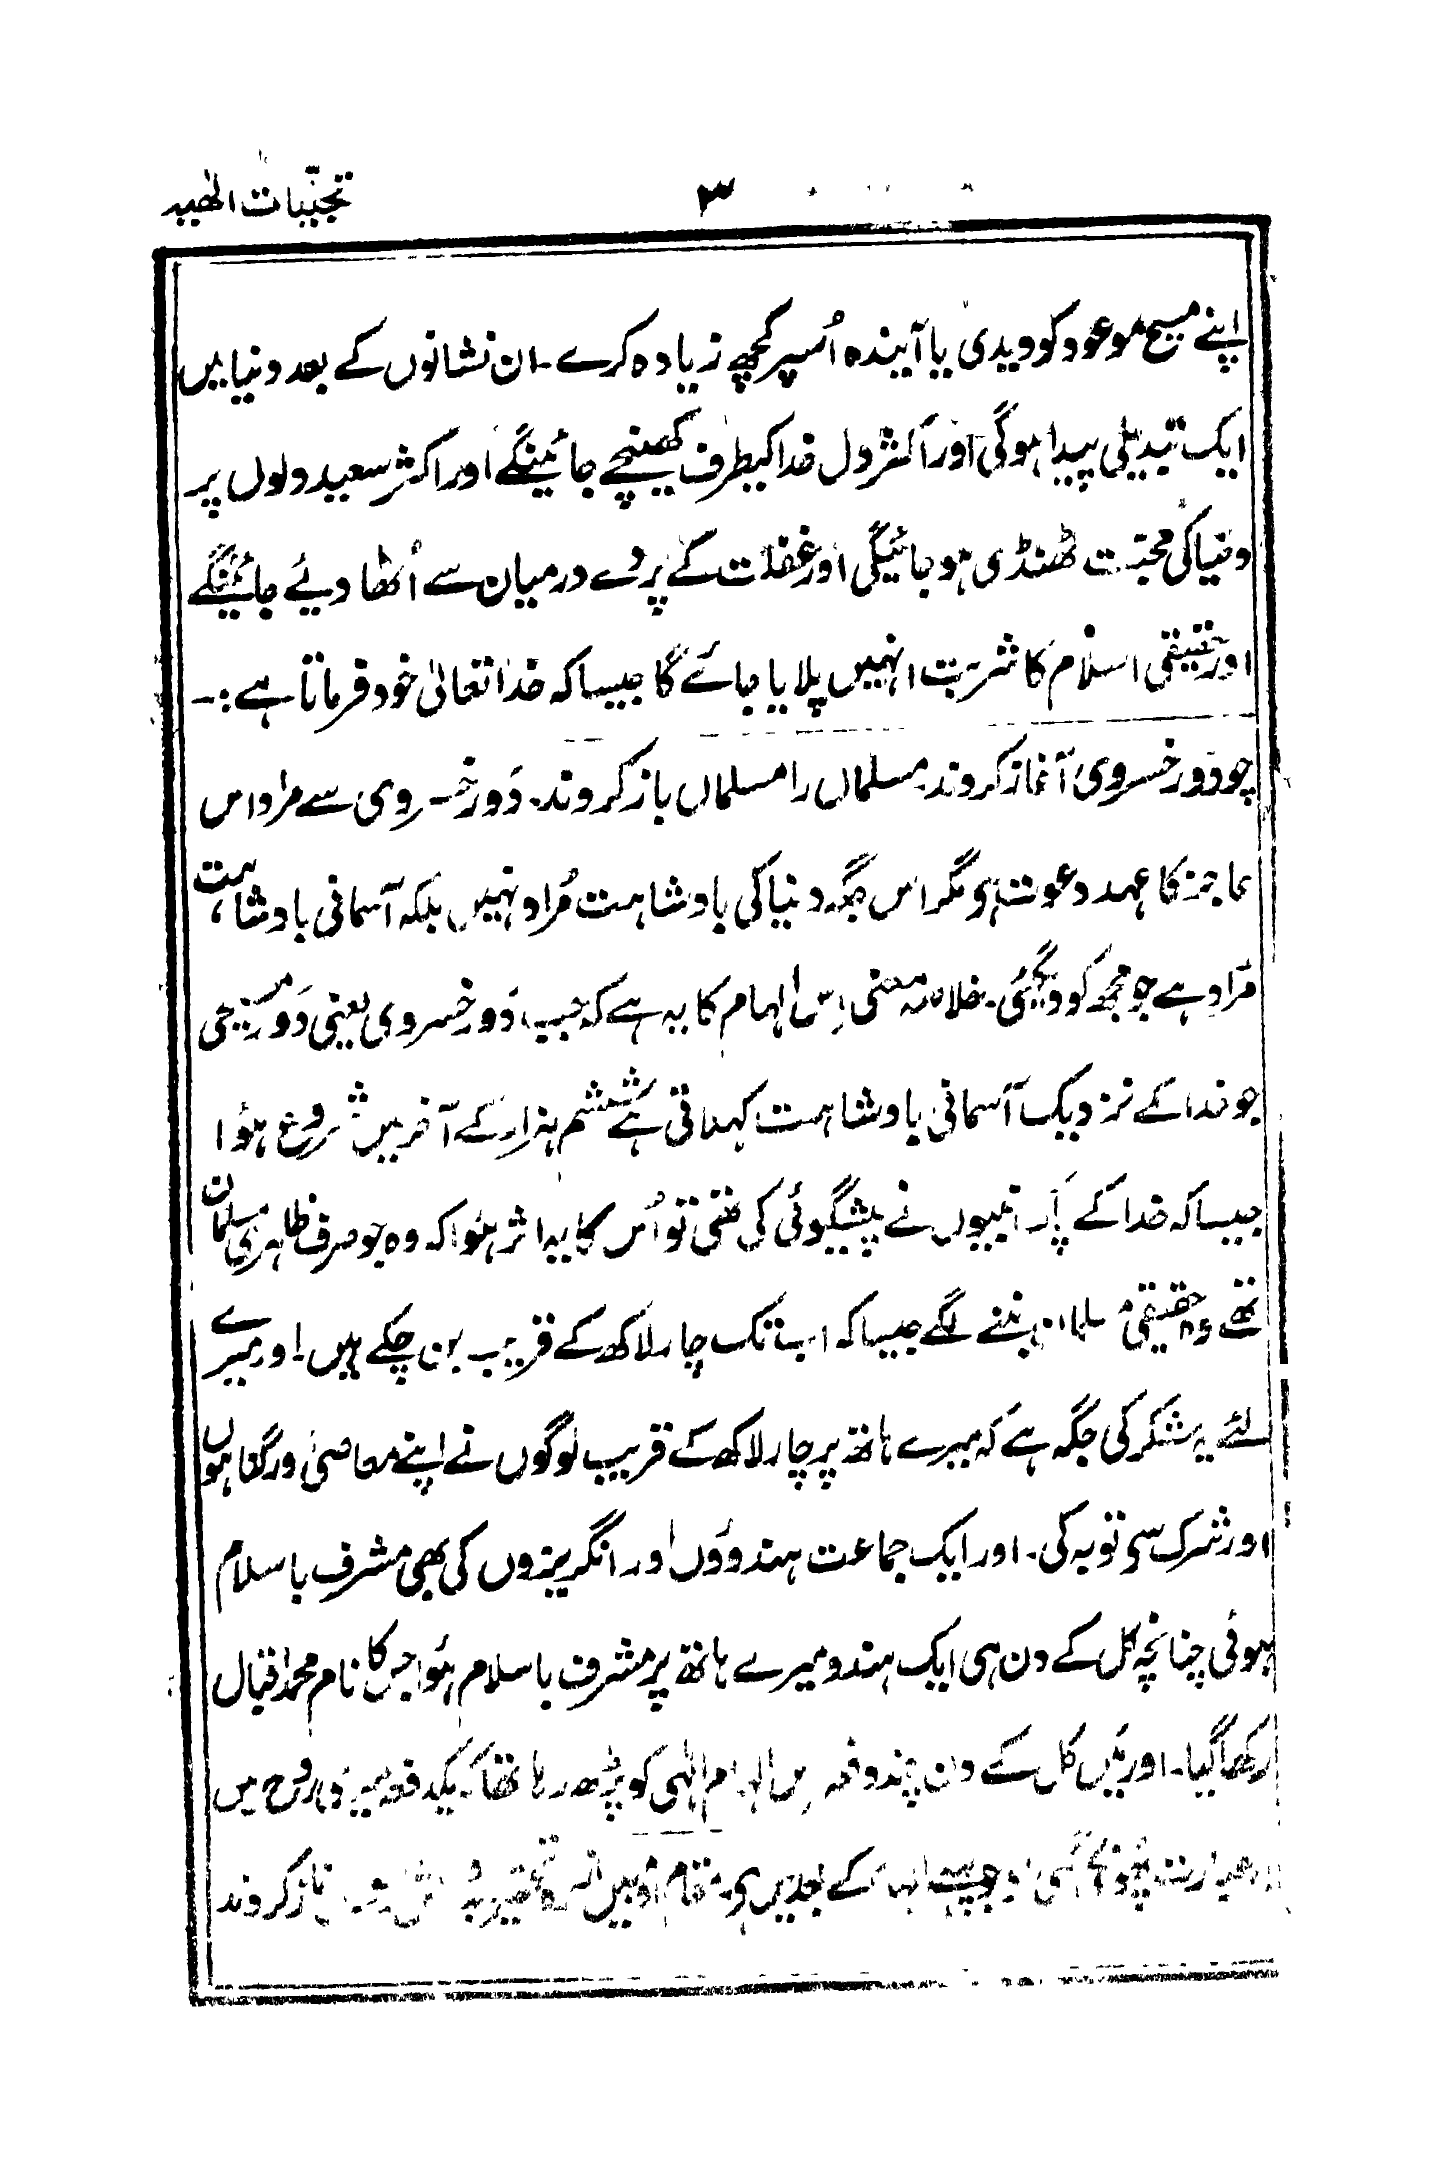 تجلّیات الٰہیہ
۳
اپنے مسیح موعود کو دیدی یا آیندہ اُسپر کچھ زیادہ کرے۔ ان نشانوں کے بعد دنیا میں
ایک تبدیلی پیدا ہوگی اور اکثر دل خدا کیطرف کھینچے جائینگے اور اکثر سعید دلوں پر
دنیا کی محبّت ٹھنڈی ہو جائیگی اور غفلت کے پردے درمیان سے اُٹھا دیئے جائینگے
اور حقیقی اسلام کا شربت انہیں پلایا جائے گا جیسا کہ خدا تعالیٰ خود فرماتا ہے:۔
چو دَور خسروی آغاز کردند۔ مسلماں را مسلماں باز کردند۔ دَور خسروی سے مراد اس
عاجز کا عہد دعوت ہی مگر اس جگہ دنیا کی بادشاہت مُراد نہیں بلکہ آسمانی بادشاہت
مُراد ہے جو مجھ کو دیگئی۔ خلاصہ معنی اِس الہام کا یہ ہے کہ جب دَور خسروی یعنی دَور مسیحی
جو خدا کے نزدیک آسمانی بادشاہت کہلاتی ہے ششم ہزار کے آخر میں شروع ہؤا
جیسا کہ خدا کے پاک نبیوں نے پیشگوئی کی تھی تو اُس کا یہ اثر ہؤا کہ وہ جو صرف ظاہری مسلمان
تھے وہ حقیقی مسلمان بننے لگے جیسا کہ اب تک چار لاکھ کے قریب بن چکے ہیں۔ اور میرے
لئے یہ شکر کی جگہ ہے کہ میرے ہاتھ پر چار لاکھ کے قریب لوگوں نے اپنے معاصی اور گناہوں
اور شرک سی توبہ کی۔ اور ایک جماعت ہندوؤں اور انگریزوں کی بھی مشرف باسلام
ہوئی چنانچہ کل کے دن ہی ایک ہندو میرے ہاتھ پر مشرف باسلام ہؤا جس کا نام محمد اقبال
رکھا گیا۔ اور میں کل کے دن چند دفعہ اس الہام الٰہی کو پڑھ رہا تھا کہ یکدفعہ میری روح میں
عبارت پھونکی گئی کے بعد میں ہی۔ مقام او مبیں از کردند